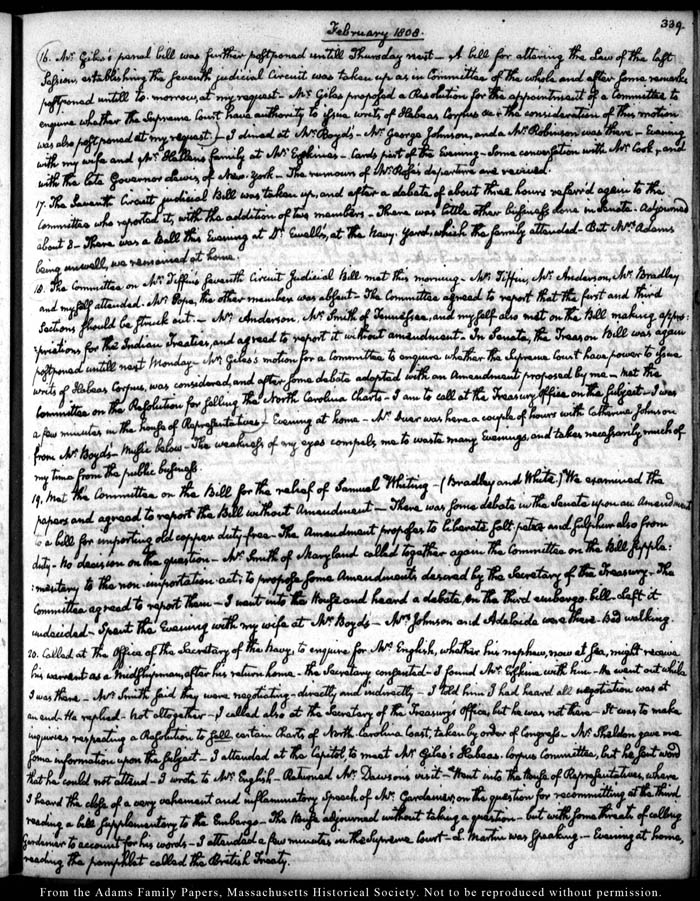 339.
February 1808.
16. Mr. Giles's penal bill was further postponed untill Thursday next — A bill for altering the Law of the last
Session, establishing the seventh judicial Circuit was taken up as in Committee of the whole and after some remarks
postponed untill to-morrow, at my request — Mr. Giles proposed a Resolution for the appointment of a Committee to
enquire whether the Supreme Court have authority to issue writs of Habeas Corpus &c. the consideration of this motion
was also postponed at my request) — I dined at Mr. Boyd's — Mr. George Johnson, and a Mr. Robinson was there — Evening
with my wife and Mr. Hellen's family at Mr. Erskine's — Cards part of the Evening — Some conversation with Mr. Cook, and
with the late Governor Lewis of New-York — The rumours of Mr. Rose's departure are revived.
17. The Seventh Circuit judicial Bill was taken up, and after a debate of about three hours referr'd again to the
Committee who reported it, with the addition of two members — There was little other business done in Senate — Adjourned
about 3 — There was a Ball this Evening at Dr. Ewell's, at the Navy-Yard, which the family attended — But Mrs. Adams
being unwell, we remained at home.
18. The Committee on Mr. Tiffin's seventh Circuit Judicial Bill met this morning — Mr. Tiffin, Mr. Anderson, Mr. Bradley
and myself attended. Mr. Pope, the other member was absent — The Committee agreed to report that the first and third
Sections should be struck out: — Mr. Anderson, Mr. Smith of Tennessee, and myself also met on the Bill making appro:
:priations for the Indian Treaties, and agreed to report it without amendment — In Senate, the Treason Bill was again
postponed untill next Monday — Mr. Giles's motion for a Committee to enquire whether the Supreme Court have power to issue
writs of Habeas Corpus, was considered, and after some debate adopted with an Amendment proposed by me — Met the
Committee on the Resolution for selling the North Carolina Charts — I am to call at the Treasury Office on the subject — I was
a few minutes in the house of Representatives) — Evening at home — Mr. was here a couple of hours with Catherine Johnson
from Mr. Boyd's — Music below — The weakness of my eyes compels me to waste many Evenings, and takes necessarily much of
my time from the public business.
19. Met the Committee on the Bill for the relief of Samuel Whiting — (Bradley and White.) We examined the
papers and agreed to report the Bill without Amendment — There was some debate in the Senate upon an Amendment
to a bill for importing old copper duty free — The Amendment proposes to liberate salt-petre and sulphur also from
duty — No decision on the question — Mr. Smith of Maryland called together again the Committee on the Bill supple:
:mentary to the non-importation act; to propose some Amendments desired by the Secretary of the Treasury — The
Committee agreed to report them — I went into the House and heard a debate, on the third embargo bill — Left it
undecided — Spent the Evening with my wife at Mr. Boyd's — Mrs. Johnson and Adelaide were there. Bad walking.
20. Called at the Office of the Secretary of the Navy, to enquire for Mr. English, whether his nephew, now at sea, might receive
his warrant as a Midshipman, after his return home — the Secretary consented — I found Mr. Erskine with him — He went out while
I was there — Mr. Smith said they were negotiating — directly and indirectly — I told him I had heard all negotiation was at
an end. He replied — Not altogether — I called also at the Secretary of the Treasury's Office, but he was not there — It was to make
inquiries respecting a Resolution to sell certain Charts of North Carolina Coast, taken by order of Congress — Mr. Sheldon gave me
some information upon the subject — I attended at the Capitol, to meet Mr. Giles's Habeas-Corpus Committee, but he sent word
that he could not attend — I wrote to Mr. English — Returned Mr. Dawson's visit — Went into the House of Representatives, where
I heard the close of a very vehement and inflammatory Speech of Mr. Gardenier, on the question for recommitting at the third
reading a bill supplementary to the Embargo — The House adjourned without taking a question — but with some threats of calling
Gardenier to account for his words — I attended a few minutes in the Supreme Court — L. Martin was speaking — Evening at home,
reading the pamphlet called the British Treaty.
From the Adams Family Papers, Massachusetts Historical Society. Not to be reproduced without permission.